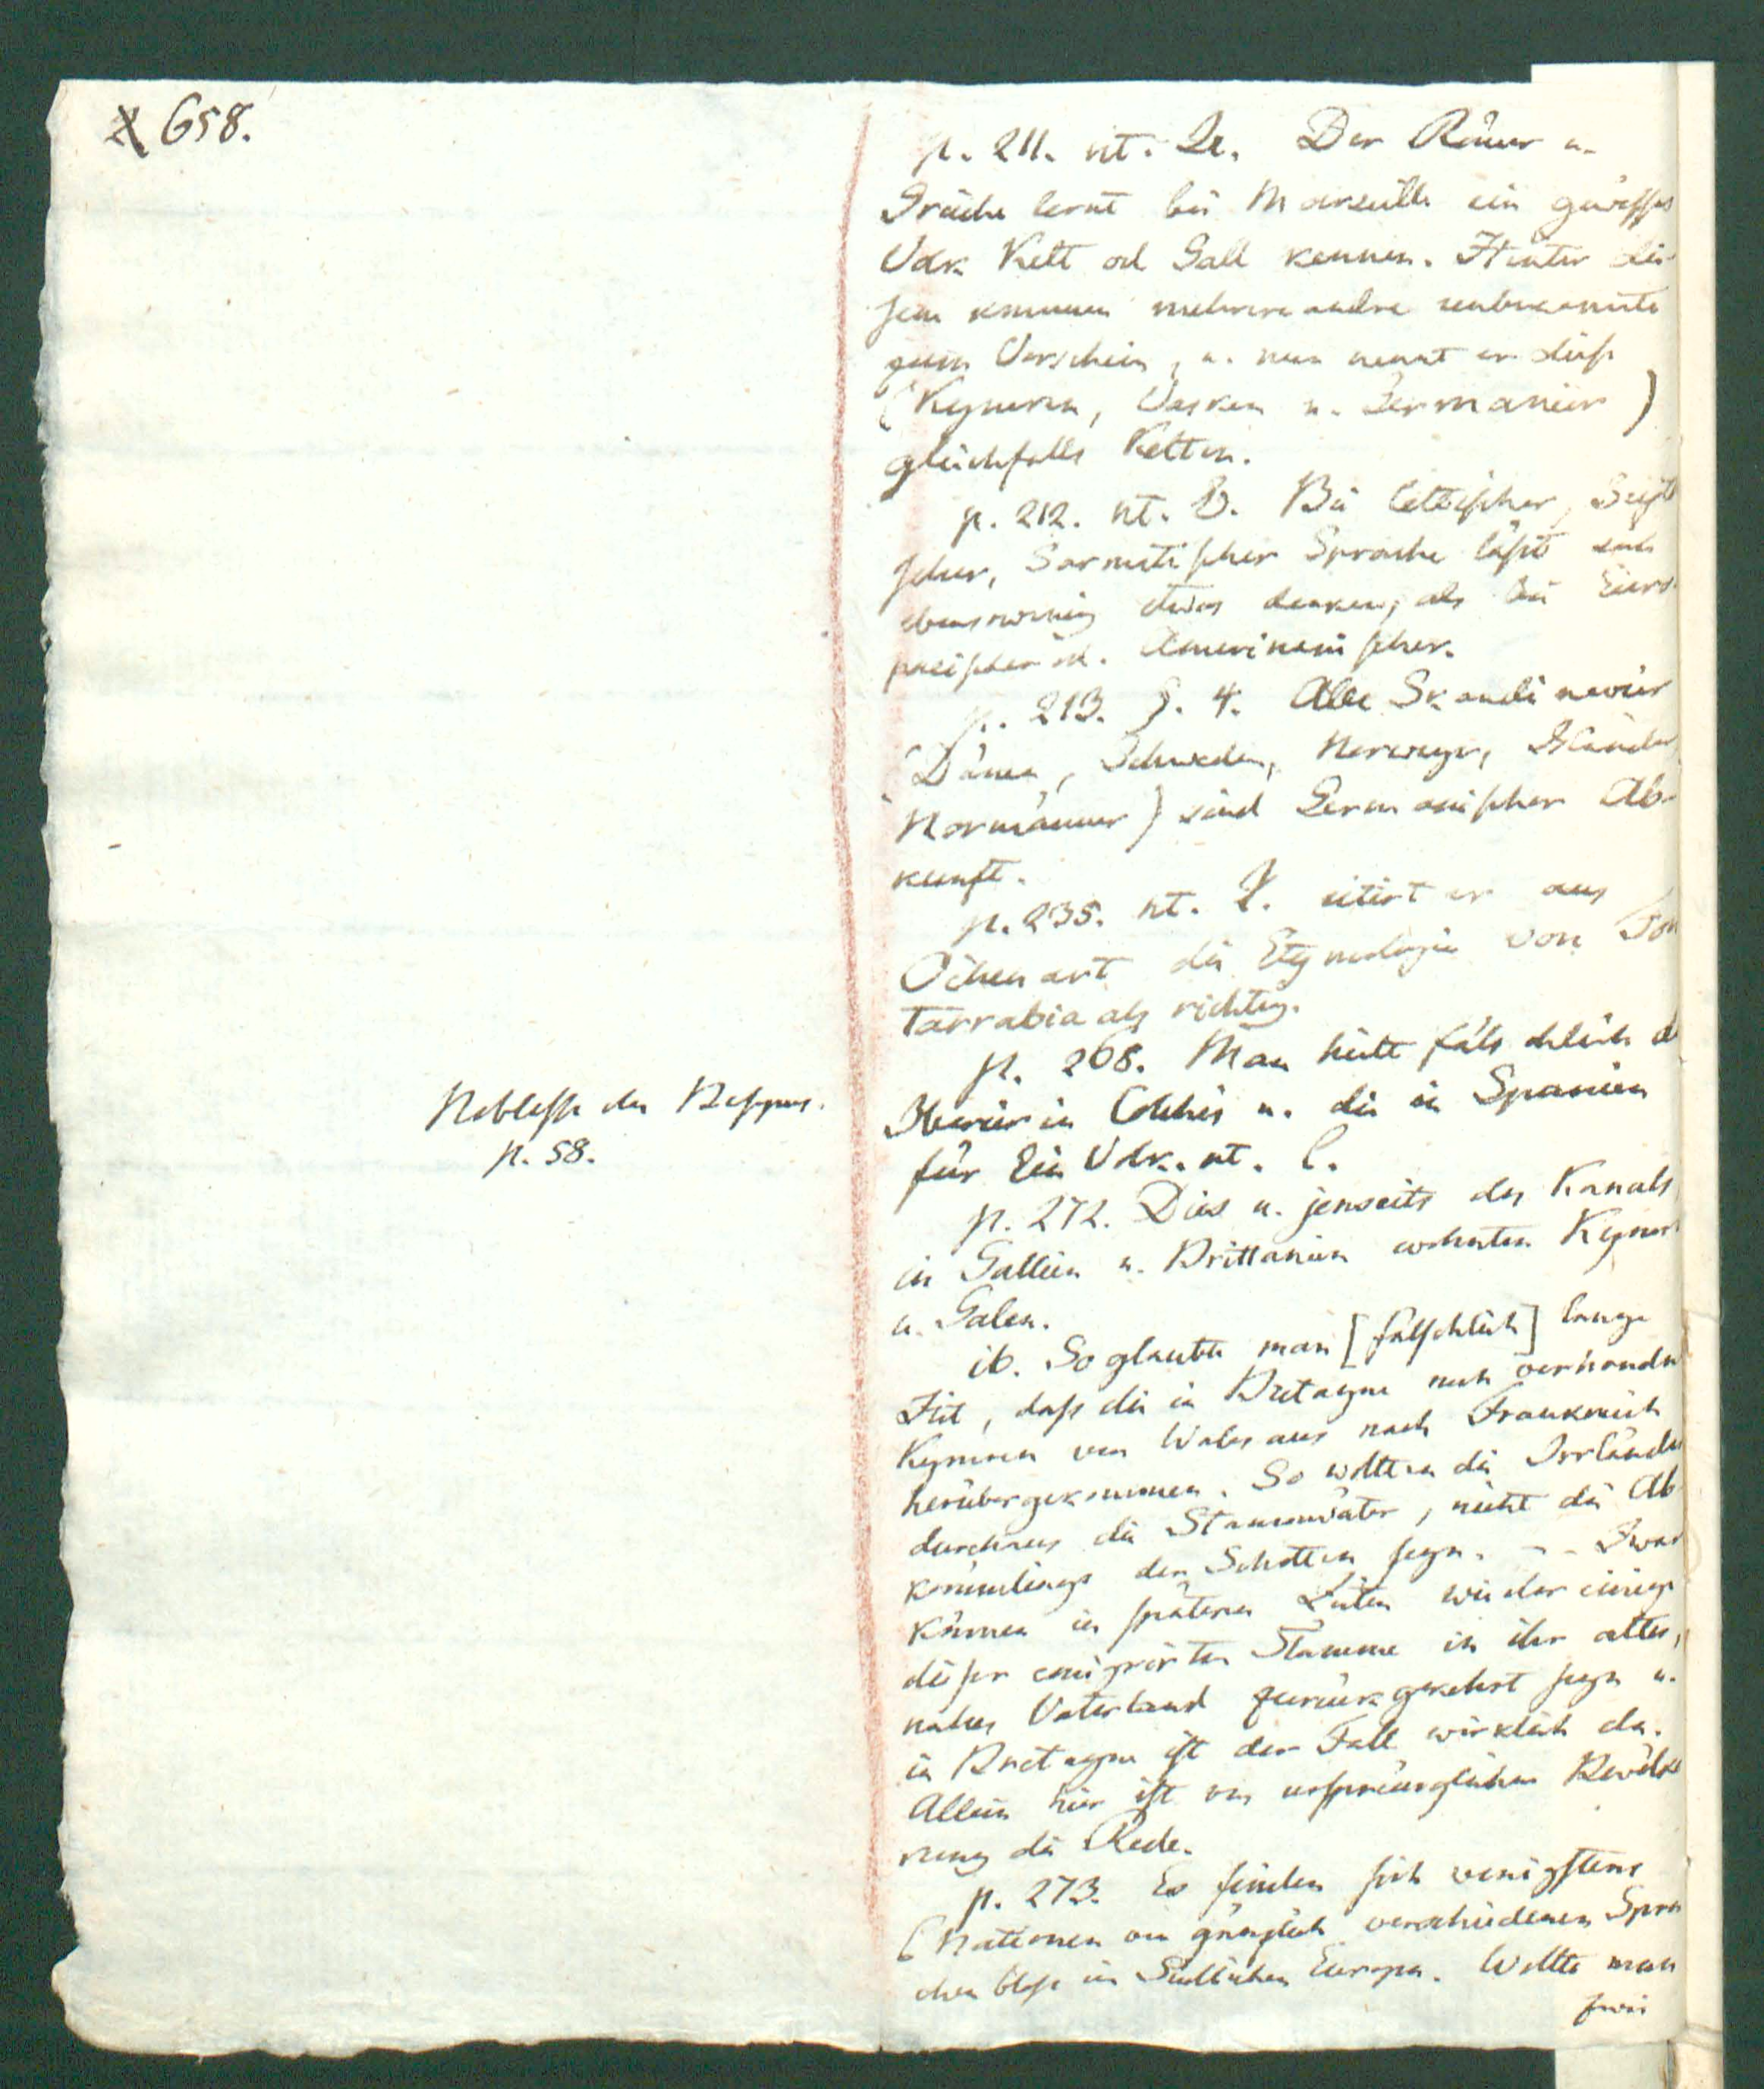 658.
p. 211. nt. Qr. Der Römer u.
Grieche lernt bei Marseille ein gewisses
Volk Kelt od Gall kennen. Hinter die-
sem kommen mehrere andre unbekannte
zum Vorschein, u. nun nennt er diese
(Kymren, Vasken u. Germanier)
gleichfalls Kelten.
p. 212. nt. V. Bei lettischer,
scher, Sarmatischer Sprache läßt sich
ebensowenig etwas denken, als bei Euro-
päischer od. Amerikanischer.
p. 213. §. 4. Alle Skandinavier
(Dänen, Schweden, Norweger, Isländer
Normänner) sind Germanischer Ab-
kunft.
p. 235. nt. I. citirt er aus
Oihenart die Etymologie von Fon
tarrabia als richtig.
p. 268. Man hielt fälschlich d
Iberier in Colchis u. die in Spanien
für Ein Volk. nt. C.
Noblesse des Basques.
p. 58.
p. 272. Dies u. jenseits des Kanals
in Gallien u. Brittanien wohnten Kymren
u. Galen.
ib. So glaubte man [fälschlich] lange
Zeit, daß die in Bretagne noch vorhandn
Kymren von Wales aus nach Frankreich
herübergekommen. So wollten die Irrländer
durchaus die Stammväter, nicht die Ab
kömmlinge der Schotten seyn. -- Zwar
können in spätern Zeiten wieder einige
dieser emigrirten Stämme in ihr altes,
nahes Vaterland zurückgekehrt seyn u.
in Bretagne ist der Fall wirklich da.
Allein hier ist von ursprünglicher Bevölke
rung die Rede.
p. 273. Es finden sich wenigstens
6 Nationen von gänzlich verschiedenen Spra
chen bloß im Südlichen Europa. Wollte man
zwei